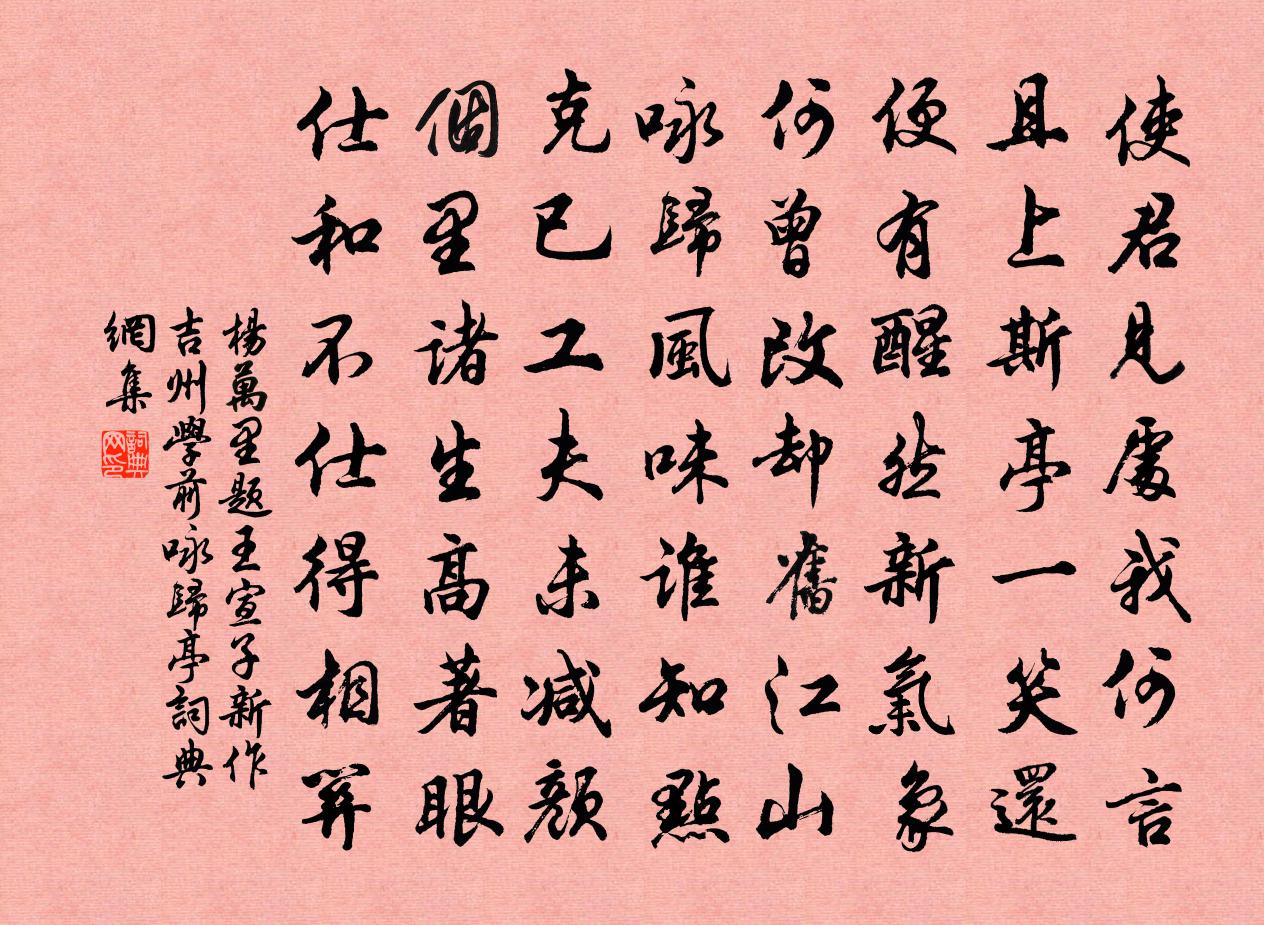 使君見處我何言
且上斯亭一笑還
便有醒然新氣象
何曾改却舊江山
咏歸風味誰知點
克已工夫未減顏
個里諸生高著眼
仕和不仕得相關
楊萬里題王宣子新作
吉州學前咏歸亭詞典
網集
詞典
网印